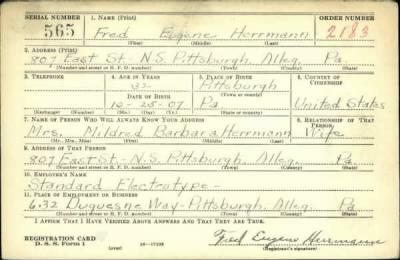 SERIAL NUMBER 1. NAME (Print) ORDER NUMBER
565 Fred Eugene Herrmann 2183
(First) (Middle) (Last)
2. ADDRESS (Print)
807 East St. N.S. Pittsburgh, Alleg. Pa.
(Number and street or R. F. D. number) (Town) (County) (State)
3. TELEPHONE 4. AGE IN YEARS 5. PLACE OF BIRTH 6. COUNTRY OF CITIZENSHIP
32 Pittsburgh
DATE OF BIRTH (Town or county)
10-28-07 Pa United States
(Exchange) (Number) (Mo.) (Day) (Yr.) (State or country)
7. NAME OF PERSON WHO WILL ALWAYS KNOW YOUR ADDRESS 8. RELATIONSHIP OF THAT PERSON
Mrs. Mildred Barbara Herrmann Wife
(Mr., Mrs., Miss) (First) (Middle) (Last)
9. ADDRESS OF THAT PERSON
807 East St.-N.S. Pittsburgh, Alleg. Pa.
(Number and street or R. F. D. number) (Town) (County) (State)
10. EMPLOYER'S NAME
Standard Electrotype-
11. PLACE OF EMPLOYMENT OR BUSINESS
632 Duquesne Way-Pittsburgh, Alleg. Pa
(Number and street or R. F. D. number) (Town) (County) (State)
I AFFIRM THAT I HAVE VERIFIED ABOVE ANSWERS AND THAT THEY ARE TRUE.
REGISTRATION CARD
D. S. S. Form 1 (over) Fred Eugene Herrmann
(Registrant's signature)